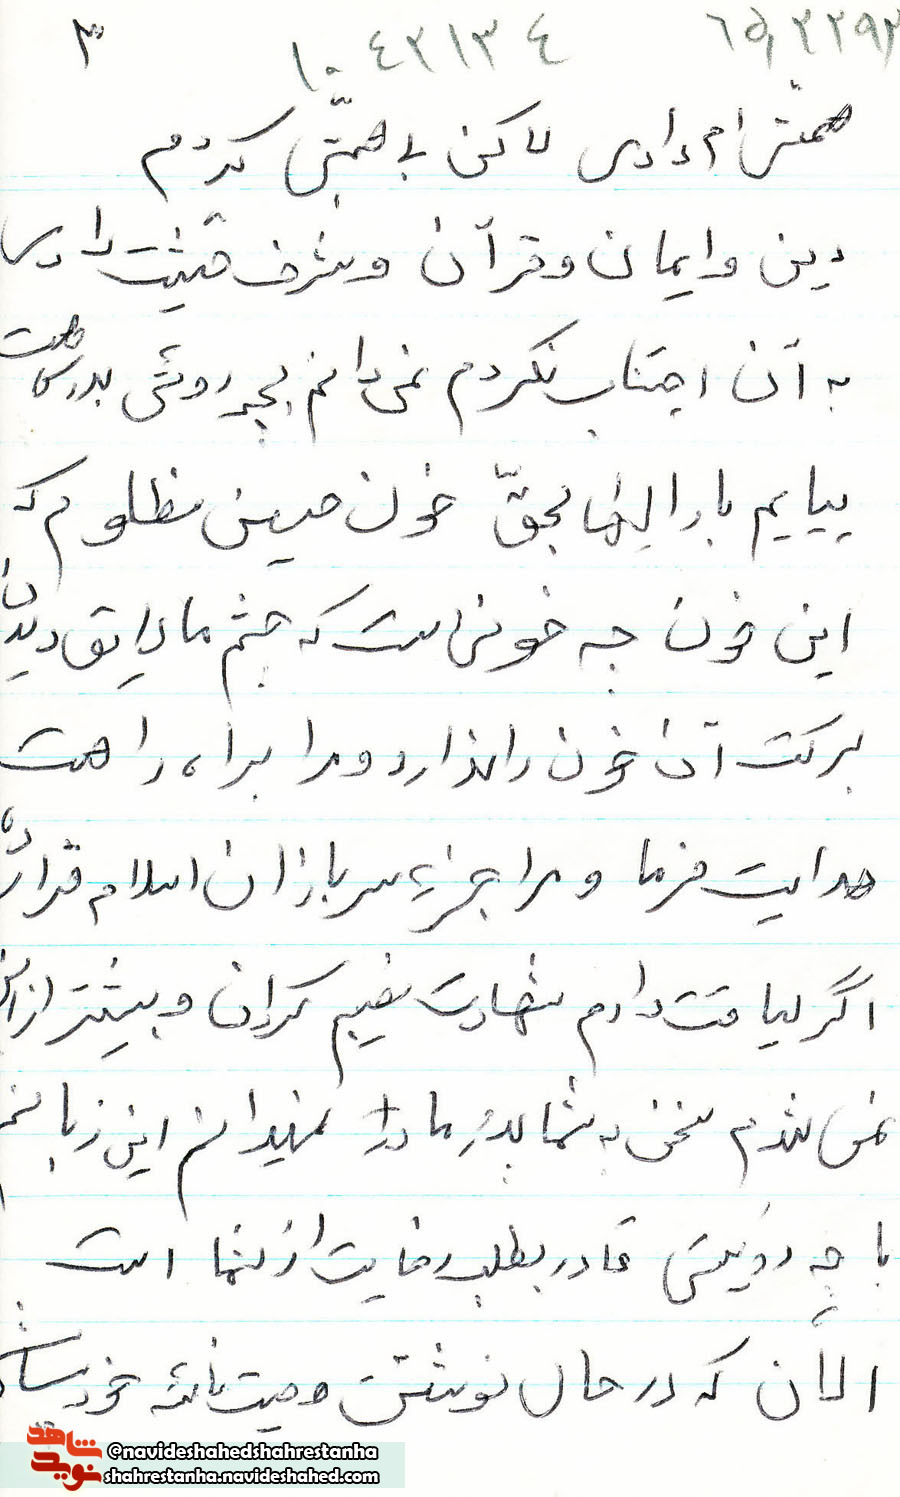 ۳
۱۰۴۲۱۳۴
۶۵٫۲۲۹۲
همتش ام دادی لاکن بی همتی کردم
دین و ایمان و قرآن و شرف دادی
به آن اجتناب نکردم نمی دانم بچه روئی بدرگاهت
بیایم بارالها بحقّ خون حسین مظلوم که
این خون چه خونی است که چشم ما لایق دیدن
برکت آن خون را ندارد و مرا براه راهت
هدایت فرما و مرا جزء سربازان اسلام قرار ده
اگر لیاقت دارم شهادت نصیبم گردان و بیشتر از این
نمی شدم سخنی به شما پدر مادر نمیدانم این زبانم
با چه روئی قادر بطلب رضایت از شما است
الآن که در حال نوشتن وصیت نامه خود
شاهد
نوید
@navideshahedshahrestanha
shahrestanha.navideshahed.com